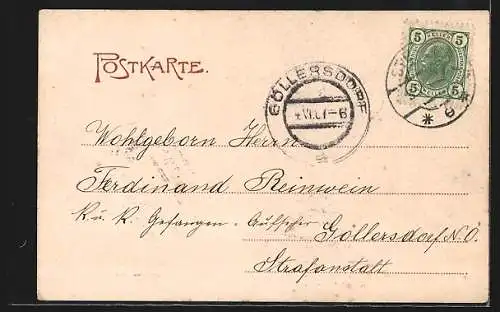 POSTKARTE.
5 5
5 HELLER 5
GÖLLERSDORF
Wohlgeborn Herrn
Ferdinand Reinwein
k. u. k. Gefangen-Aufseher
Göllersdorf N.Ö.
Strafanstalt